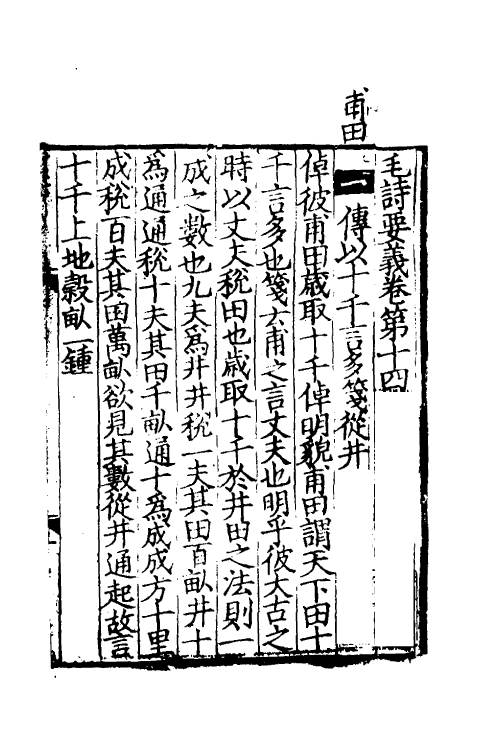 甫田
毛詩要義卷第十四
一 傳以十千言多箋從井
倬彼甫田歲取十千倬明貌甫田謂天下田十
千言多也箋云甫之言丈夫也明乎彼大古之
時以丈夫稅田也歲取十千於井田之法則一
成之數也九夫為井井稅一夫其田百畝井十
為通通稅十夫其田千畝通十為成成方十里
成稅百夫其田萬畝欲見其數從井通起故言
十千上地穀畝一鍾